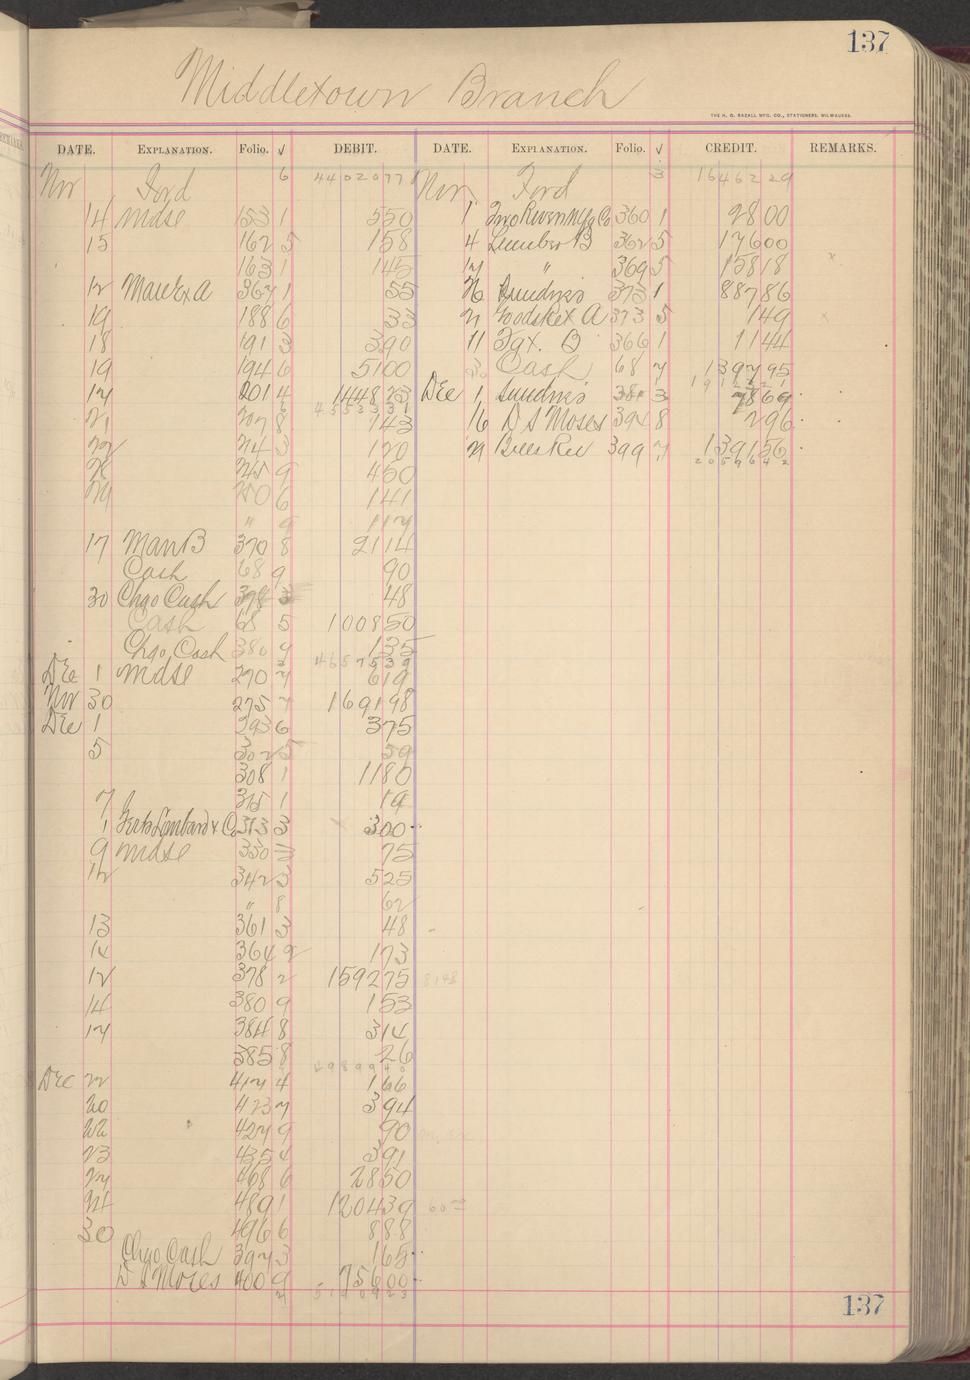 137
Middletown Branch
THE H. G. RAZALL MFG. CO., STATIONERS, MILWAUKEE.
DATE. EXPLANATION. Folio. √ DEBIT. DATE. EXPLANATION. Folio. √ CREDIT. REMARKS.
Nov Ford 6 4402077 Nov Ford 3 1646229
14 Mdse 153 1 550 1 360 1 2800
15 162 5 158 4 Lumber B 362 5 17600
163 1 145 17 " 369 5 15818
12 Man Ex A 367 1 55 26 Sundries 373 1 88786
19 188 6 33 Goods Ex A 373 5 149
18 191 3 390 11 366 1 1144
19 194 6 5100 30 Cash 68 7 139795
17 201 4 144823 Dec 1 Sundries 381 3 7869
21 207 8 143 16 D S Moses 394 8 296
22 214 3 120 399 7 139156
215 9 450 2059642
6 141
" 9 117
17 Man B 370 8 2114
Cash 68 9 90
30 Chgo Cash 3 48
Cash 68 5 100850
Chgo Cash 380 9 135
4657539
Dec 1 Mdse 270 7 619
Nov 30 275 7 169198
Dec 1 293 6 375
5 302 5 59
308 1 1180
7 315 1 19
1 313 3 300
9 Mdse 330 3 75
12 342 3 525
" 8 62
13 361 3 48
14 364 9 173
12 378 2 159275
14 380 9 153
17 384 8 314
385 8 26
Dec 22 417 4 166
20 423 7 394
22 427 9 90
23 435 4 391
27 468 6 2850
24 489 1 120439
30 496 6 888
Chgo Cash 397 3 165
D S Moses 400 9 75600
137